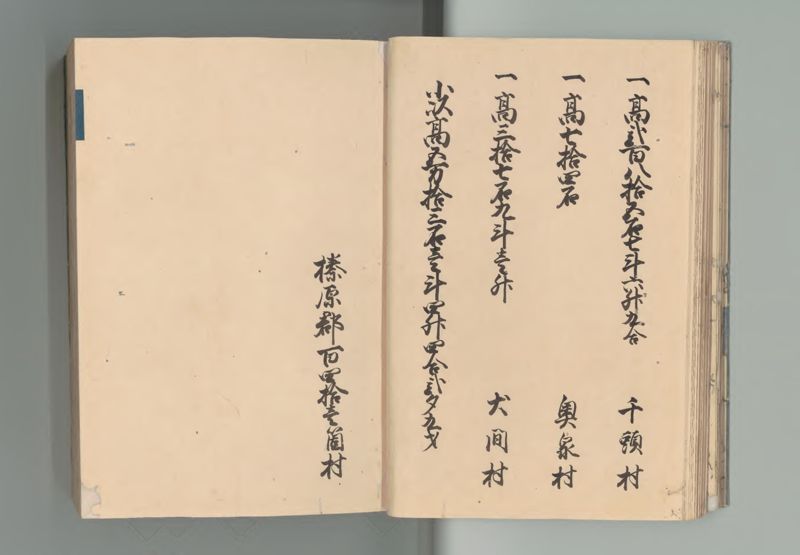 一高弐百八拾五石七斗六升九合 千頭村
一高七拾四石 奥泉村
一高三拾七石九斗壱升 犬間村
小以高五万拾三石壱斗四升四合弐夕九才
榛原郡百四拾壱箇村